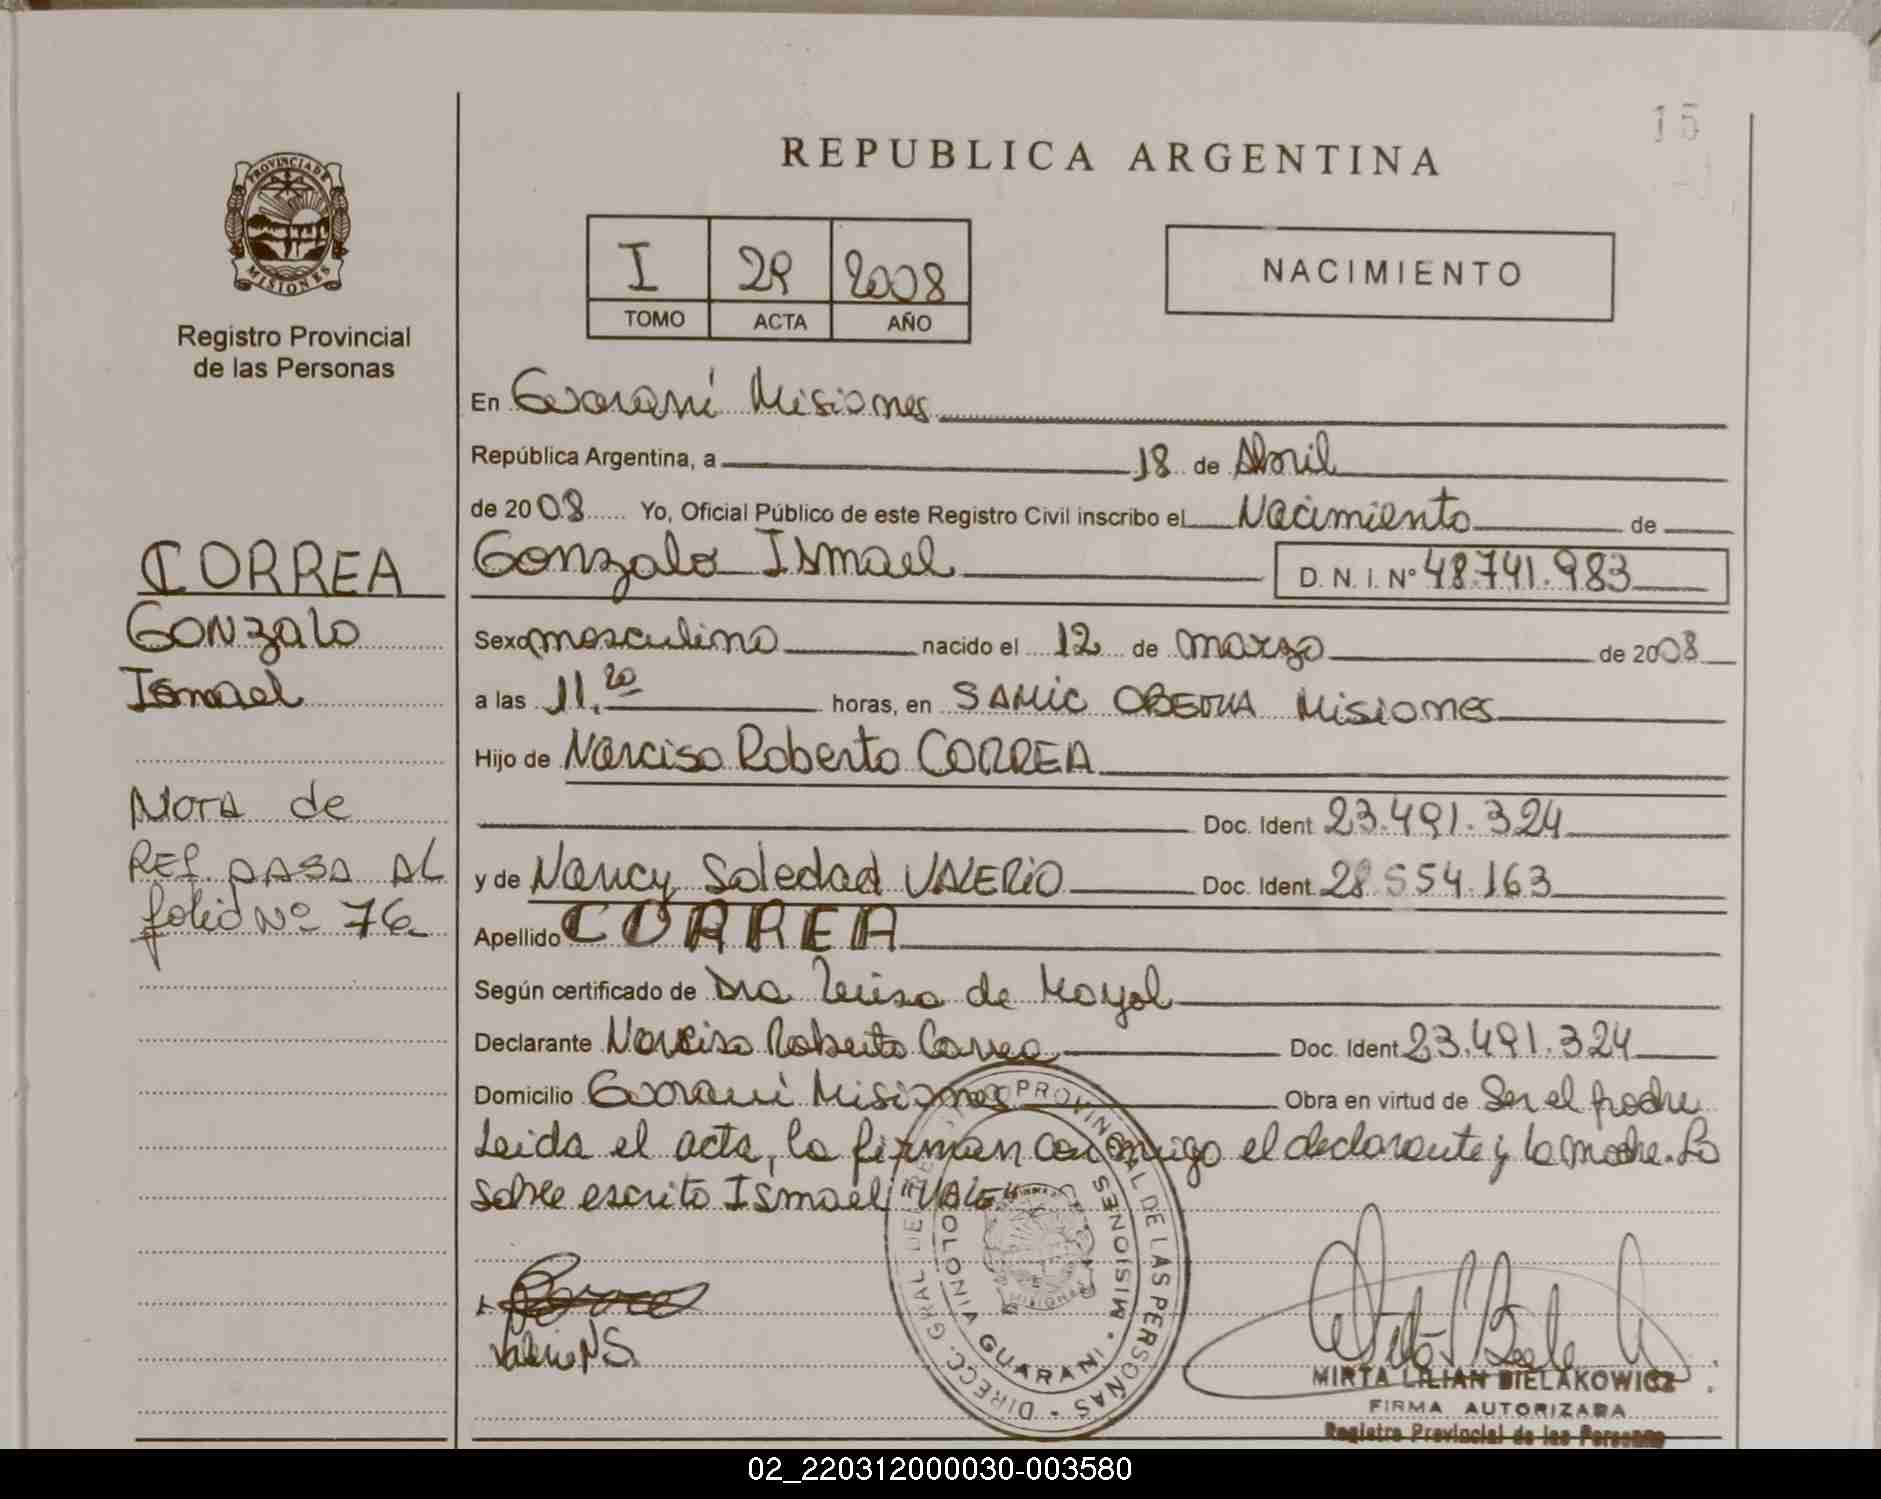 15
PROVINCIA DE
MISIONES
Registro Provincial
de las Personas
REPUBLICA ARGENTINA
I 29 2008
TOMO ACTA AÑO
NACIMIENTO
En Guaraní Misiones
República Argentina, a 18 de Abril
de 2008 Yo, Oficial Público de este Registro Civil inscribo el Nacimiento de
Gonzalo Ismael D. N. I. Nº 48.741.983
Sexo masculino nacido el 12 de marzo de 2008
a las 11.20 horas, en SAMIC OBERA Misiones
Hijo de Narciso Roberto CORREA
Doc. Ident. 23.491.324
y de Nancy Soledad VALERIO Doc. Ident. 28.554.163
Apellido CORREA
Según certificado de Dra Luisa de Mayol
Declarante Narciso Roberto Correa Doc. Ident. 23.491.324
Domicilio Guaraní Misiones Obra en virtud de Ser el padre
Leida el acta, la firman conmigo el declarante y la madre. Lo
sobre escrito Ismael VALE
CORREA
Gonzalo
Ismael
Nota de
REF. PASA AL
folio Nº 76
Valerio N S.
DIRECC. GRAL DEL REG PROVINCIAL DE LAS PERSONAS
COLONIA GUARANI - MISIONES
MIRTA LILIAN BIELAKOWICZ
FIRMA AUTORIZADA
Registro Provincial de las Personas
02_220312000030-003580